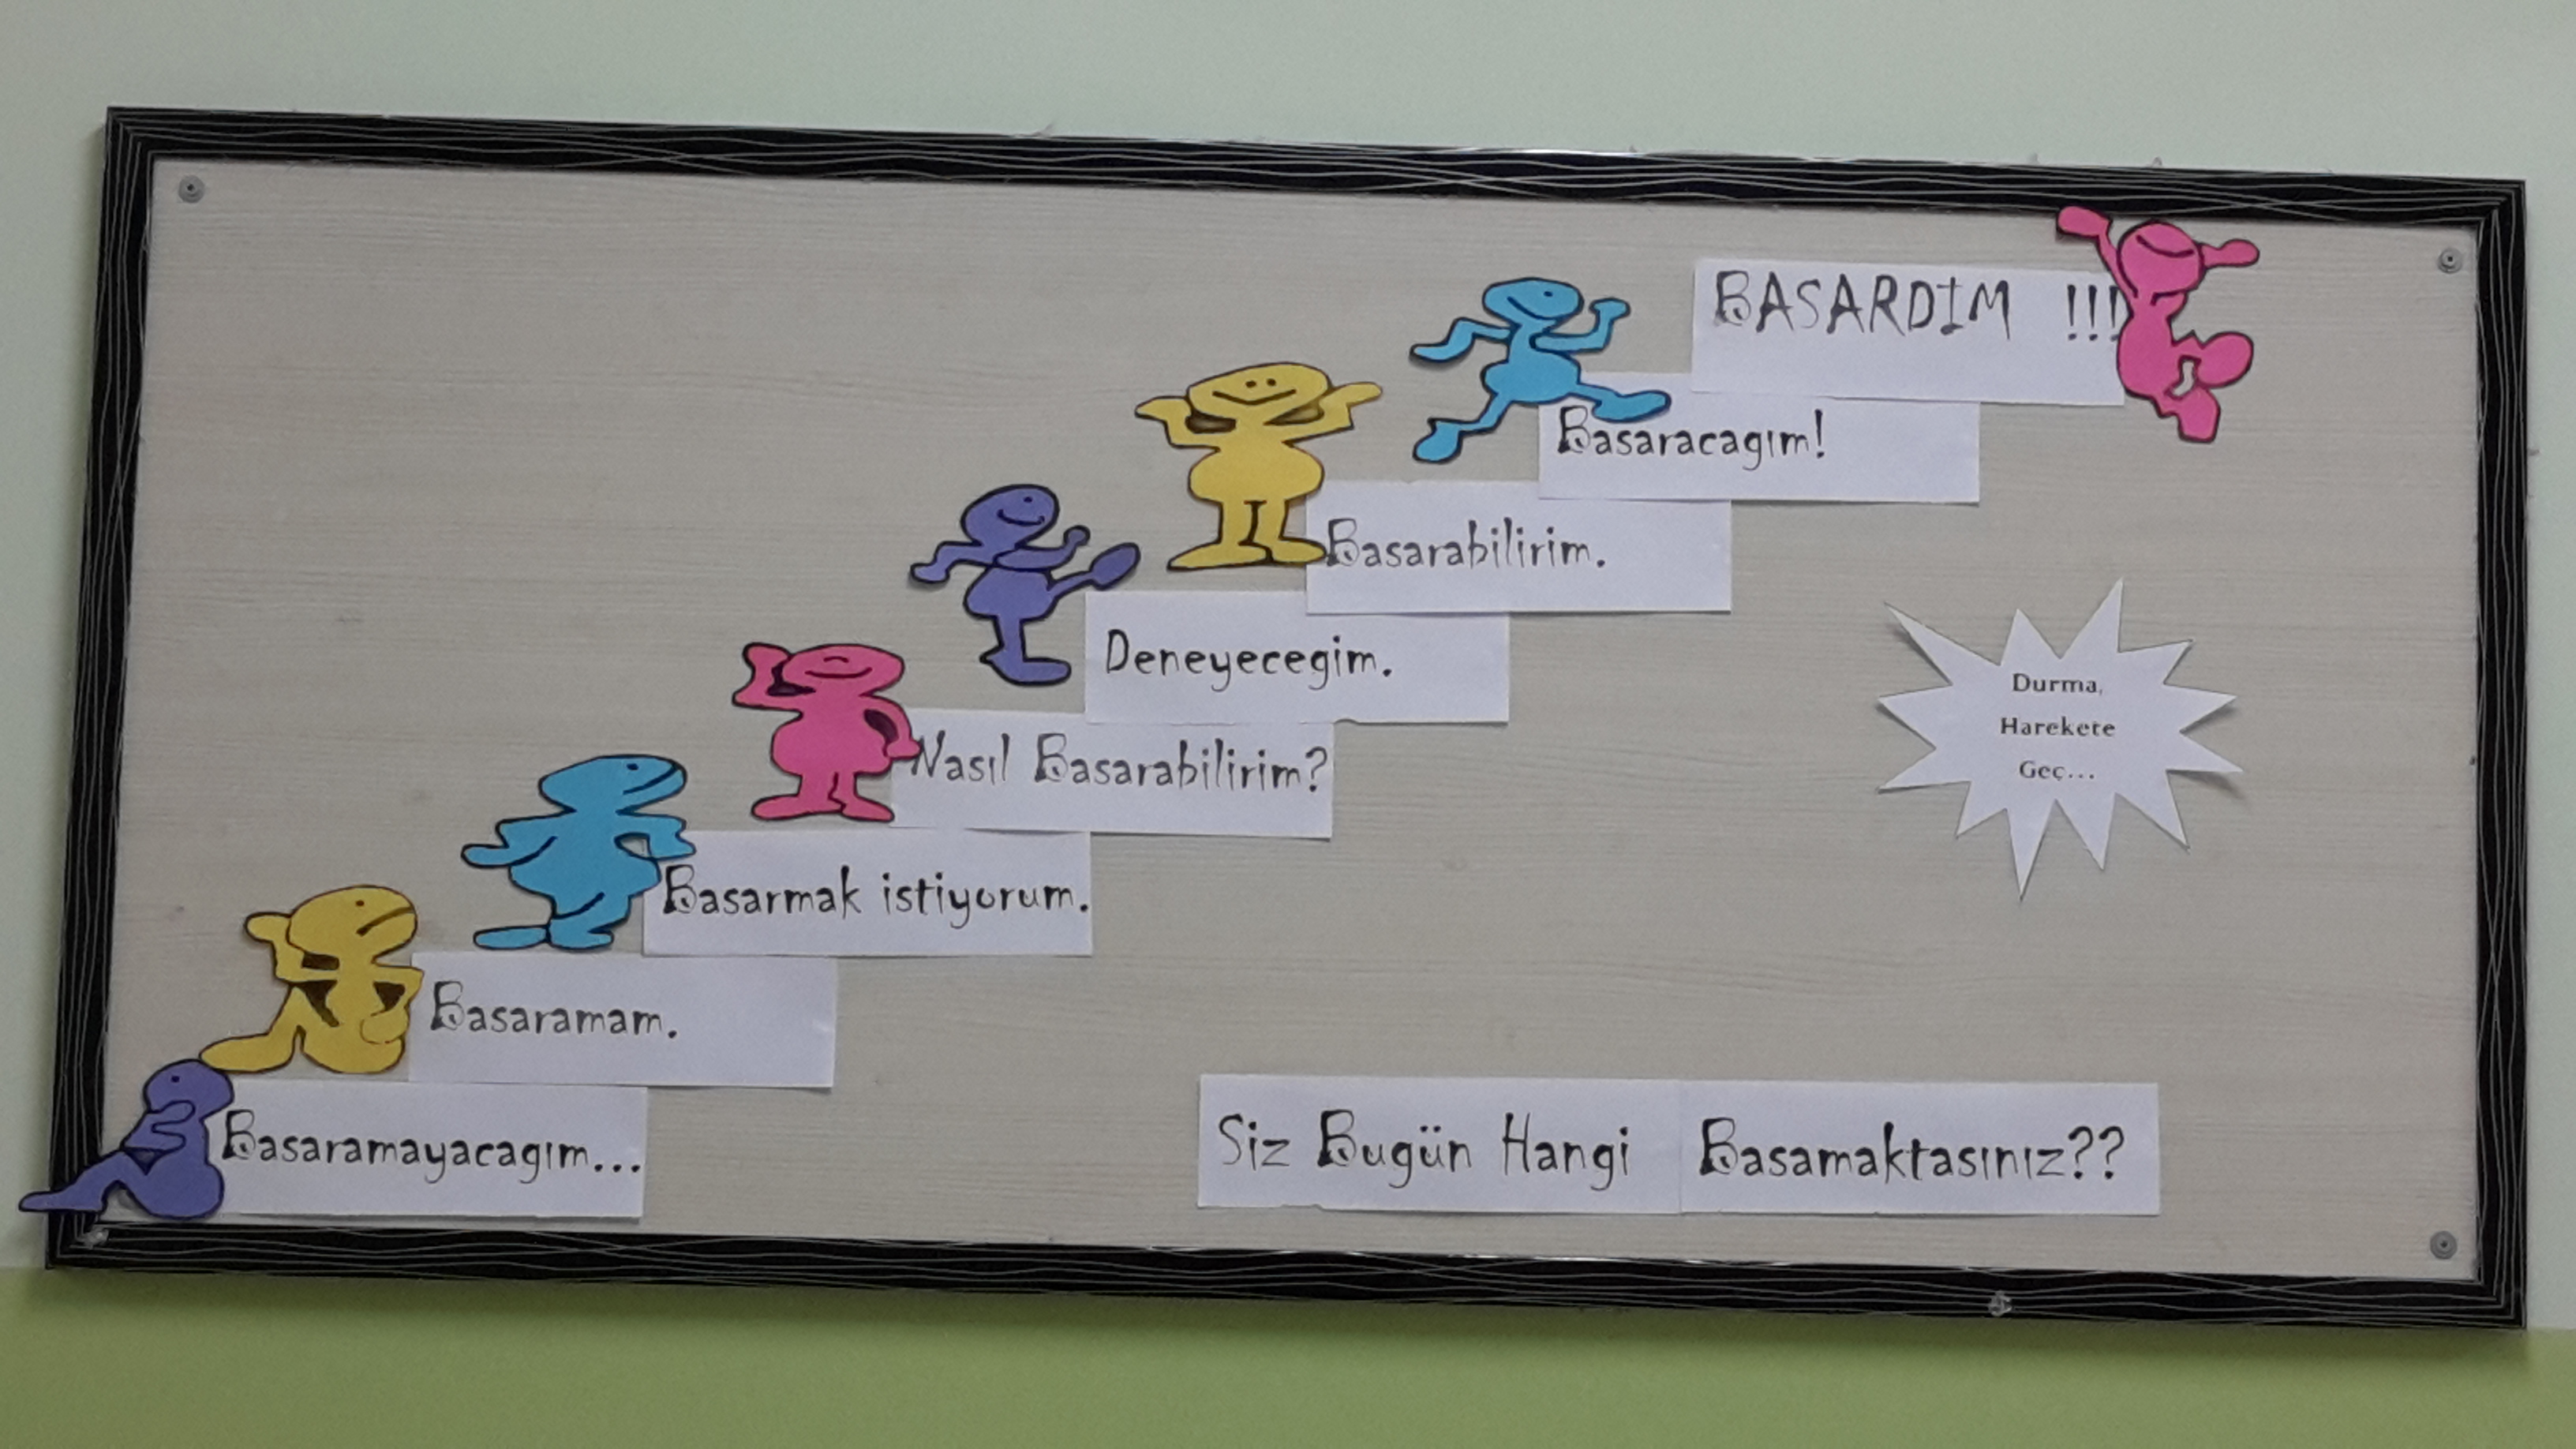 BASARDIM !!!
Basaracagım!
Basarabilirim.
Deneyecegim.
Nasıl Basarabilirim?
Basarmak istiyorum.
Basaramam.
Basaramayacagım...
Durma,
Harekete
Geç...
Siz Bugün Hangi Basamaktasınız??